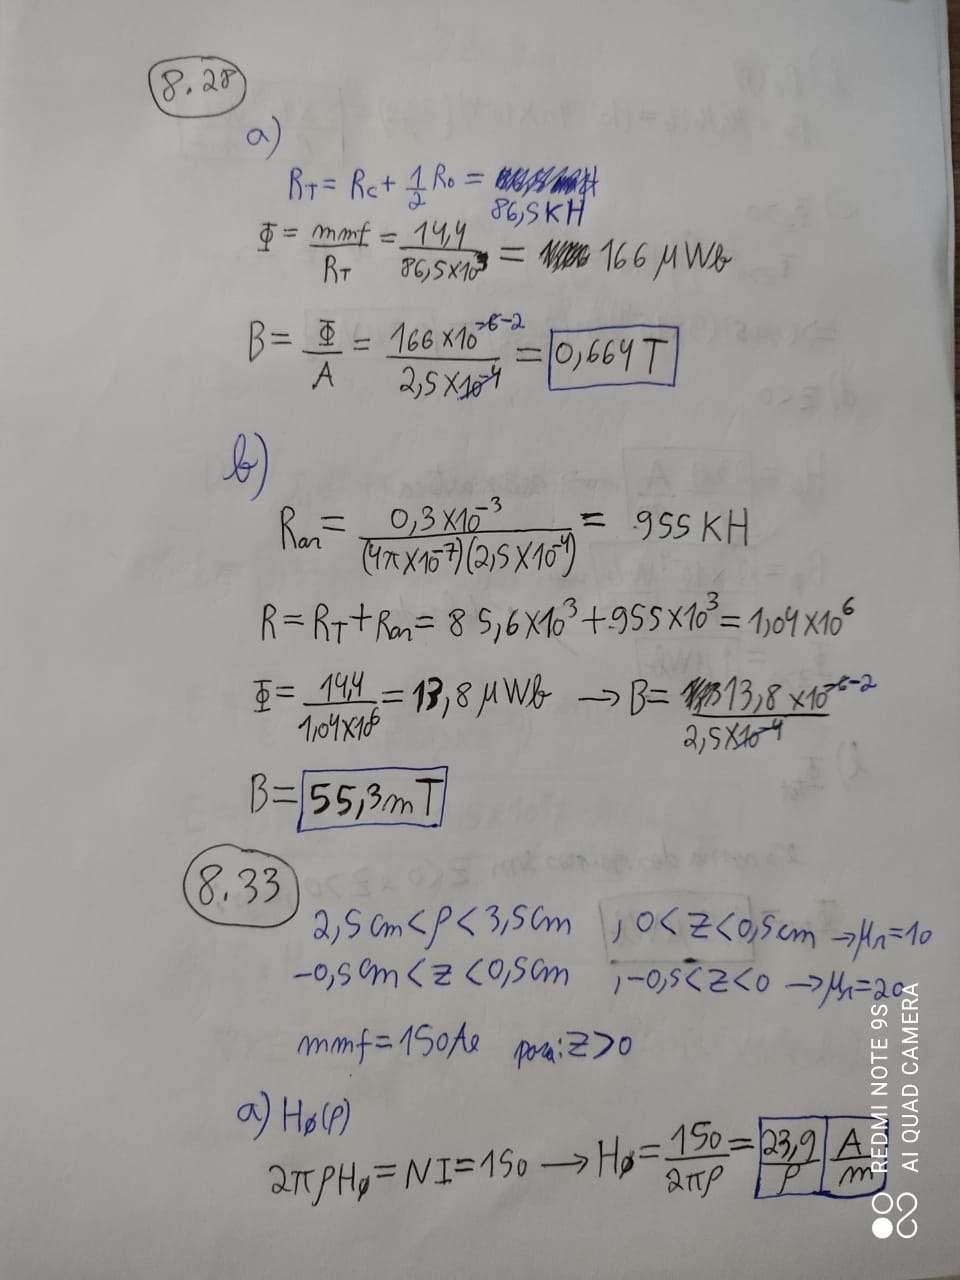 8.28
a)
R_T = R_C + 1/2 R_0 = 86,5KH
Φ = mmf/R_T = 14,4/86,5×10³ = 166 μWb
B = Φ/A = 166×10^-6-2/2,5×10^-4 = 0,664T
b)
R_ar = 0,3×10^-3/(4π×10^-7)(2,5×10^-4) = 955 KH
R = R_T + R_ar = 85,6×10³ + 955×10³ = 1,04×10⁶
Φ = 14,4/1,04×10⁶ = 13,8 μWb → B = 13,8×10^-6-2/2,5×10^-4
B = 55,3mT
8.33
2,5cm<ρ<3,5cm , 0<Z<0,5cm → μr=10
-0,5cm<z<0,5cm , -0,5<Z<0 → μr=20
mmf=150Ae para: Z>0
a) Hø(ρ)
2πρHø = NI = 150 → Hø = 150/2πρ = 23,9/ρ A/m
REDMI NOTE 9S
AI QUAD CAMERA